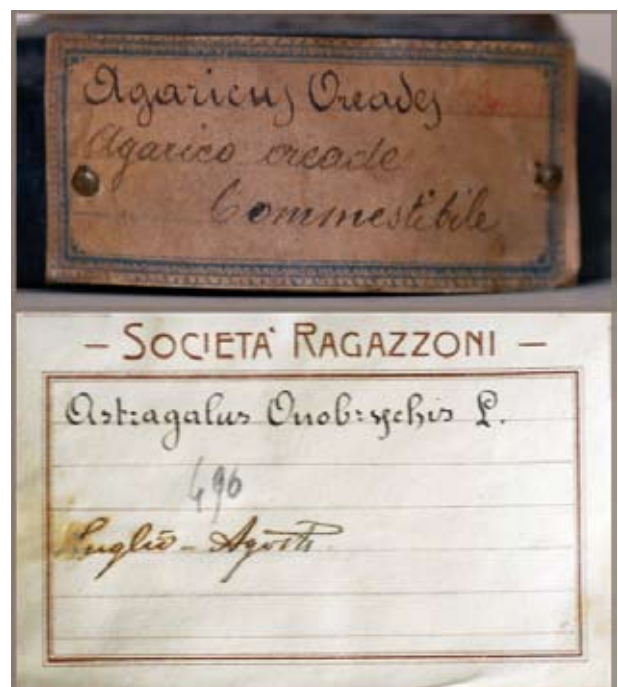 Agaricus Oreades
Agarico oreade
Commestibile
– SOCIETA' RAGAZZONI –
Astragalus Onobrychis L.
496
Luglio – Agosto